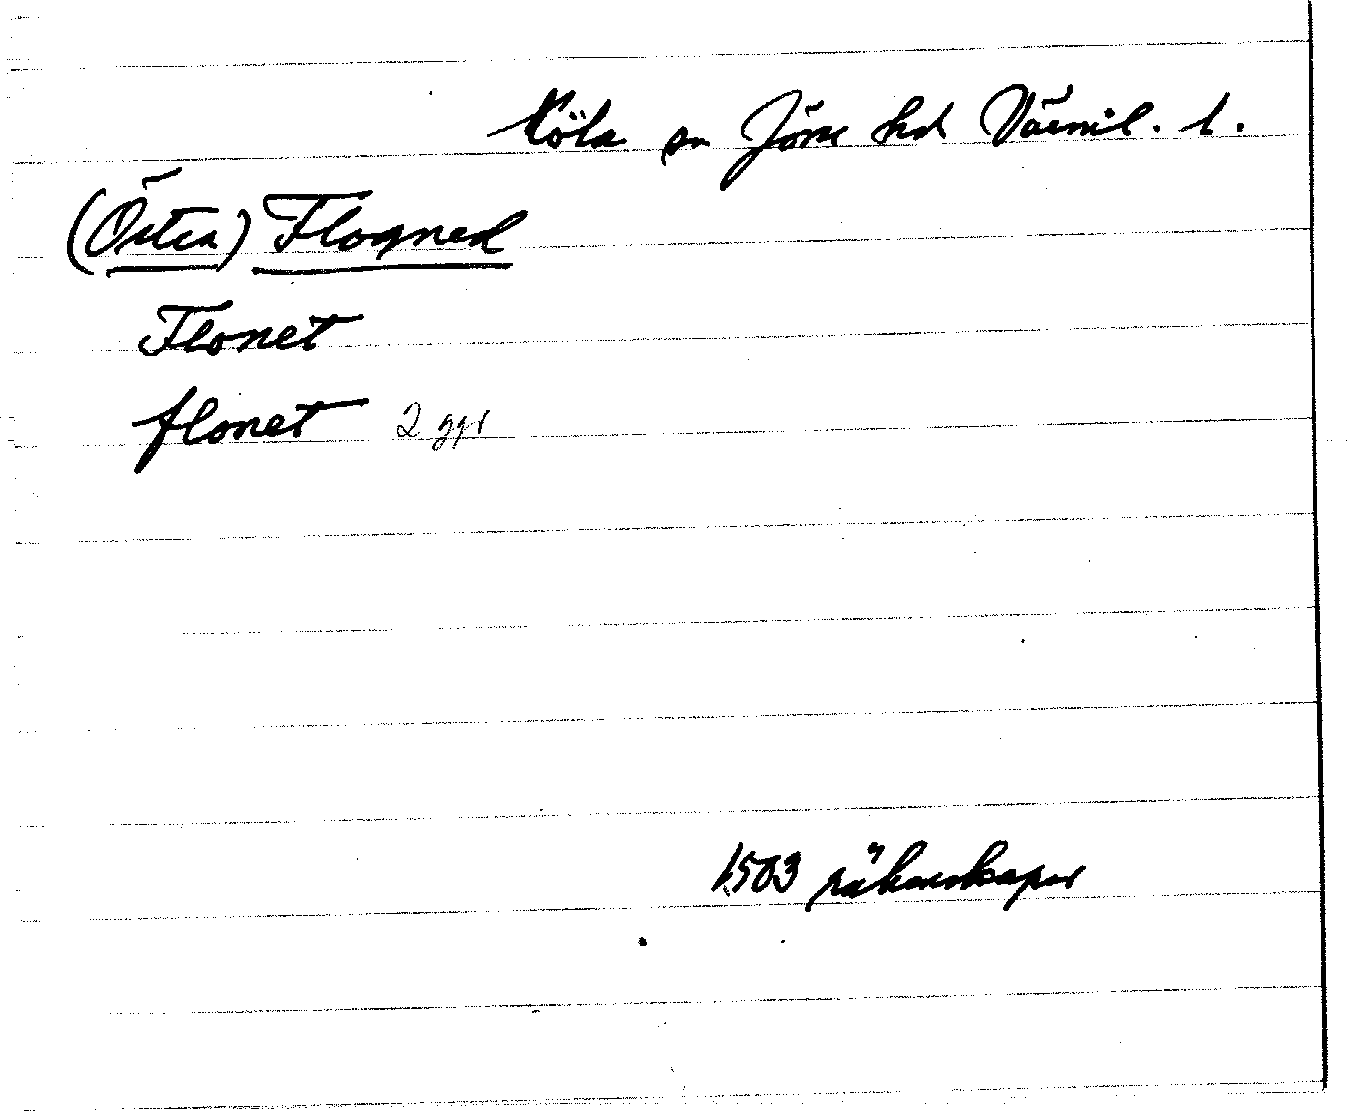 Köla sn Jösse hd Värml. l.
(Östra) Flogned
Flonet
flonet 2 ggr
1503 räkenskaper